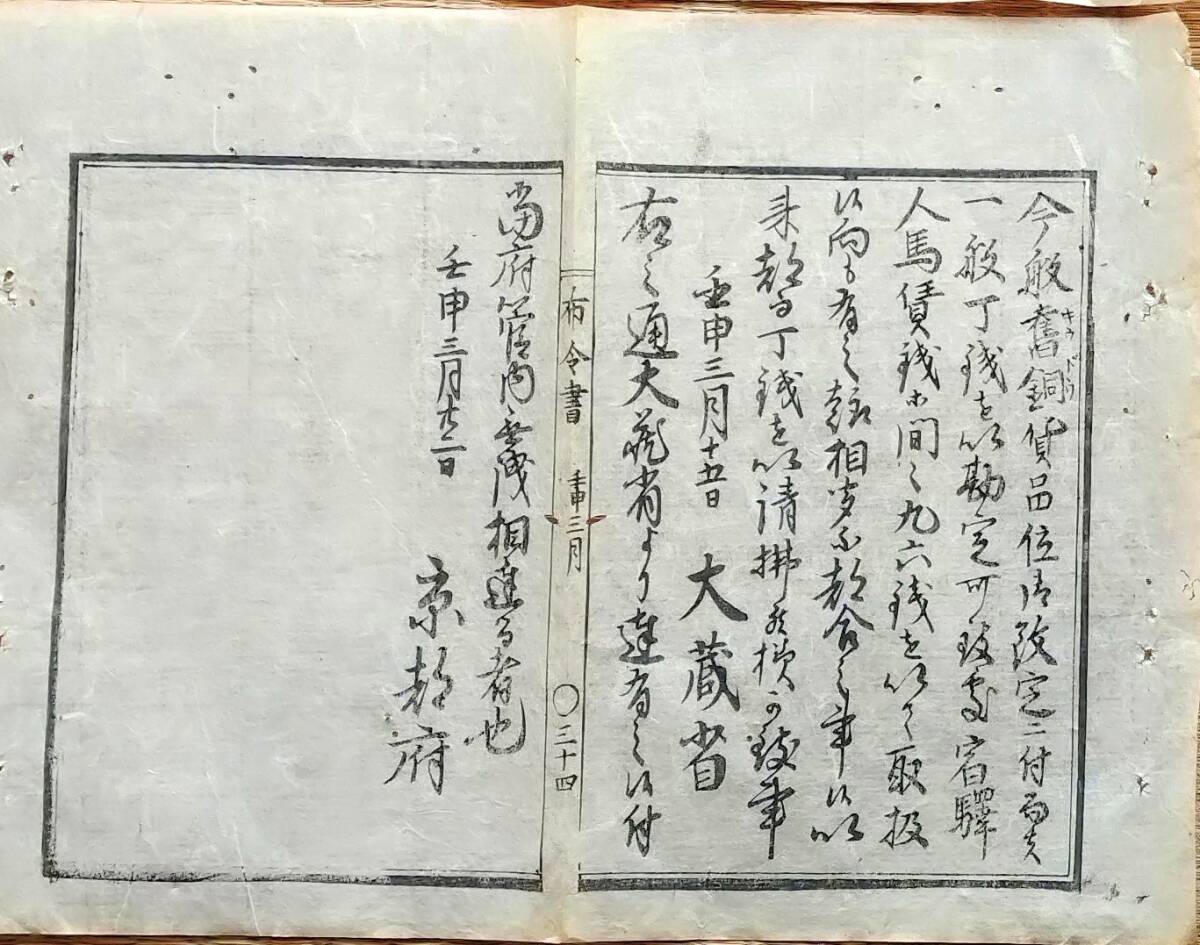 今般舊銅貨品位御改定ニ付而夫
キウドウ
一般丁銭を以勘定可致處宿驛
人馬賃銭等間々九六銭を以て取扱
候向も有之趣相聞不都合之事候以
来都而丁銭を以請拂候様可致事
壬申三月十五日 大蔵省
右之通大蔵省より達有之候付
布令書 壬申三月 〇三十四
當府管内無洩相達る者也
壬申三月廿二日
京都府